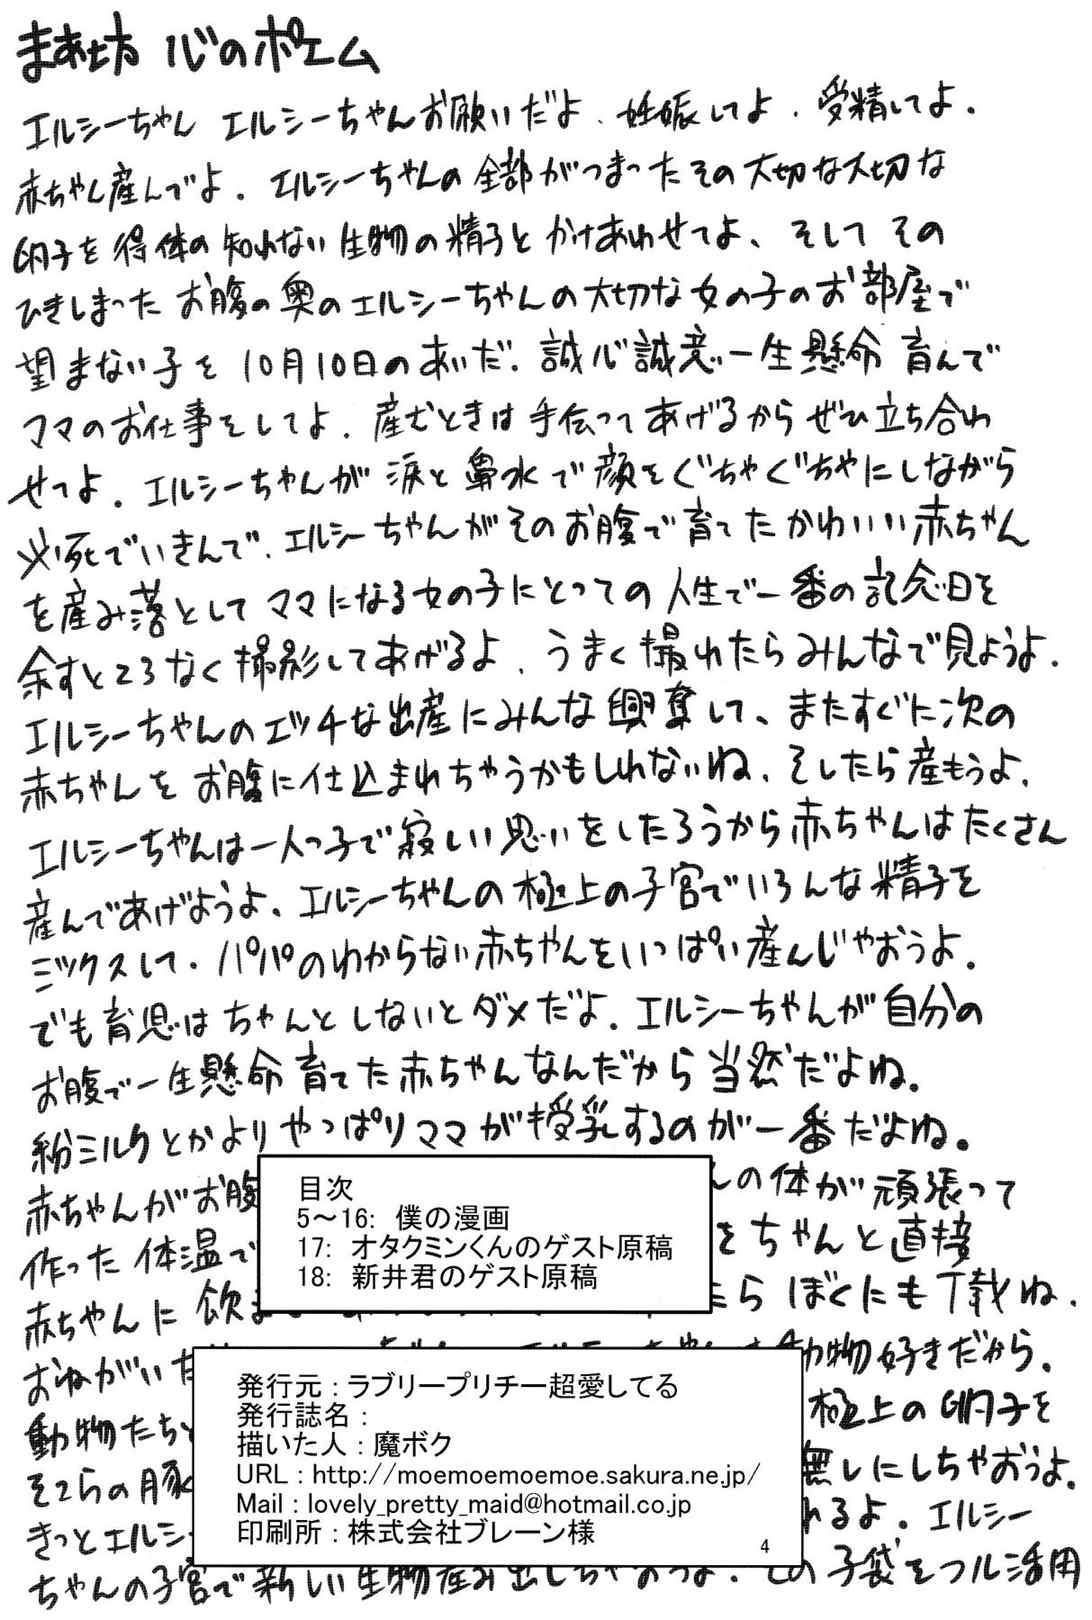 まあ坊 心のポエム
エルシーちゃん エルシーちゃんお願いだよ、妊娠してよ、受精してよ。
赤ちゃん産んでよ。エルシーちゃんの全部がつまったその大切な大切な
卵子を得体の知れない生物の精子とかけあわせてよ、そしてその
ひきしまったお腹の奥のエルシーちゃんの大切な女の子のお部屋で
望まない子を10月10日のあいだ、誠心誠意一生懸命育んで
ママのお仕事をしてよ、産むときは手伝ってあげるからぜひ立ち合わ
せてよ。エルシーちゃんが涙と鼻水で顔をぐちゃぐちゃにしながら
必死でいきんで、エルシーちゃんがそのお腹で育てたかわいい赤ちゃん
を産み落としてママになる女の子にとっての人生で一番の記念日を
余すところなく撮影してあげるよ、うまく撮れたらみんなで見ようよ。
エルシーちゃんのエッチな出産にみんな興奮して、またすぐに次の
赤ちゃんをお腹に仕込まれちゃうかもしれないね、そしたら産もうよ、
エルシーちゃんは一人っ子で寂しい思いをしたろうから赤ちゃんはたくさん
産んであげようよ、エルシーちゃんの極上の子宮でいろんな精子を
ミックスして、パパのわからない赤ちゃんをいっぱい産んじゃおうよ。
でも育児はちゃんとしないとダメだよ。エルシーちゃんが自分の
お腹で一生懸命育てた赤ちゃんなんだから当然だよね。
粉ミルクとかよりやっぱりママが授乳するのが一番だよね。
赤ちゃんがお腹 んの体が頑張って
作った体温で をちゃんと直接
赤ちゃんに飲ま たらぼくにも下載ね、
おねがい 動物好きだから。
動物たちと 極上の卵子を
そこらの豚 無しにしちゃおうよ。
きっとエルシー れるよ。エルシー
ちゃんの子宮で新しい生物産み出しちゃおうよ。その子袋をフル活用
目次
5～16: 僕の漫画
17: オタクミンくんのゲスト原稿
18: 新井君のゲスト原稿
発行元：ラブリープリチー超愛してる
発行誌名：
描いた人：魔ボク
URL：http://moemoemoemoe.sakura.ne.jp/
Mail：lovely_pretty_maid@hotmail.co.jp
印刷所：株式会社ブレーン様
4